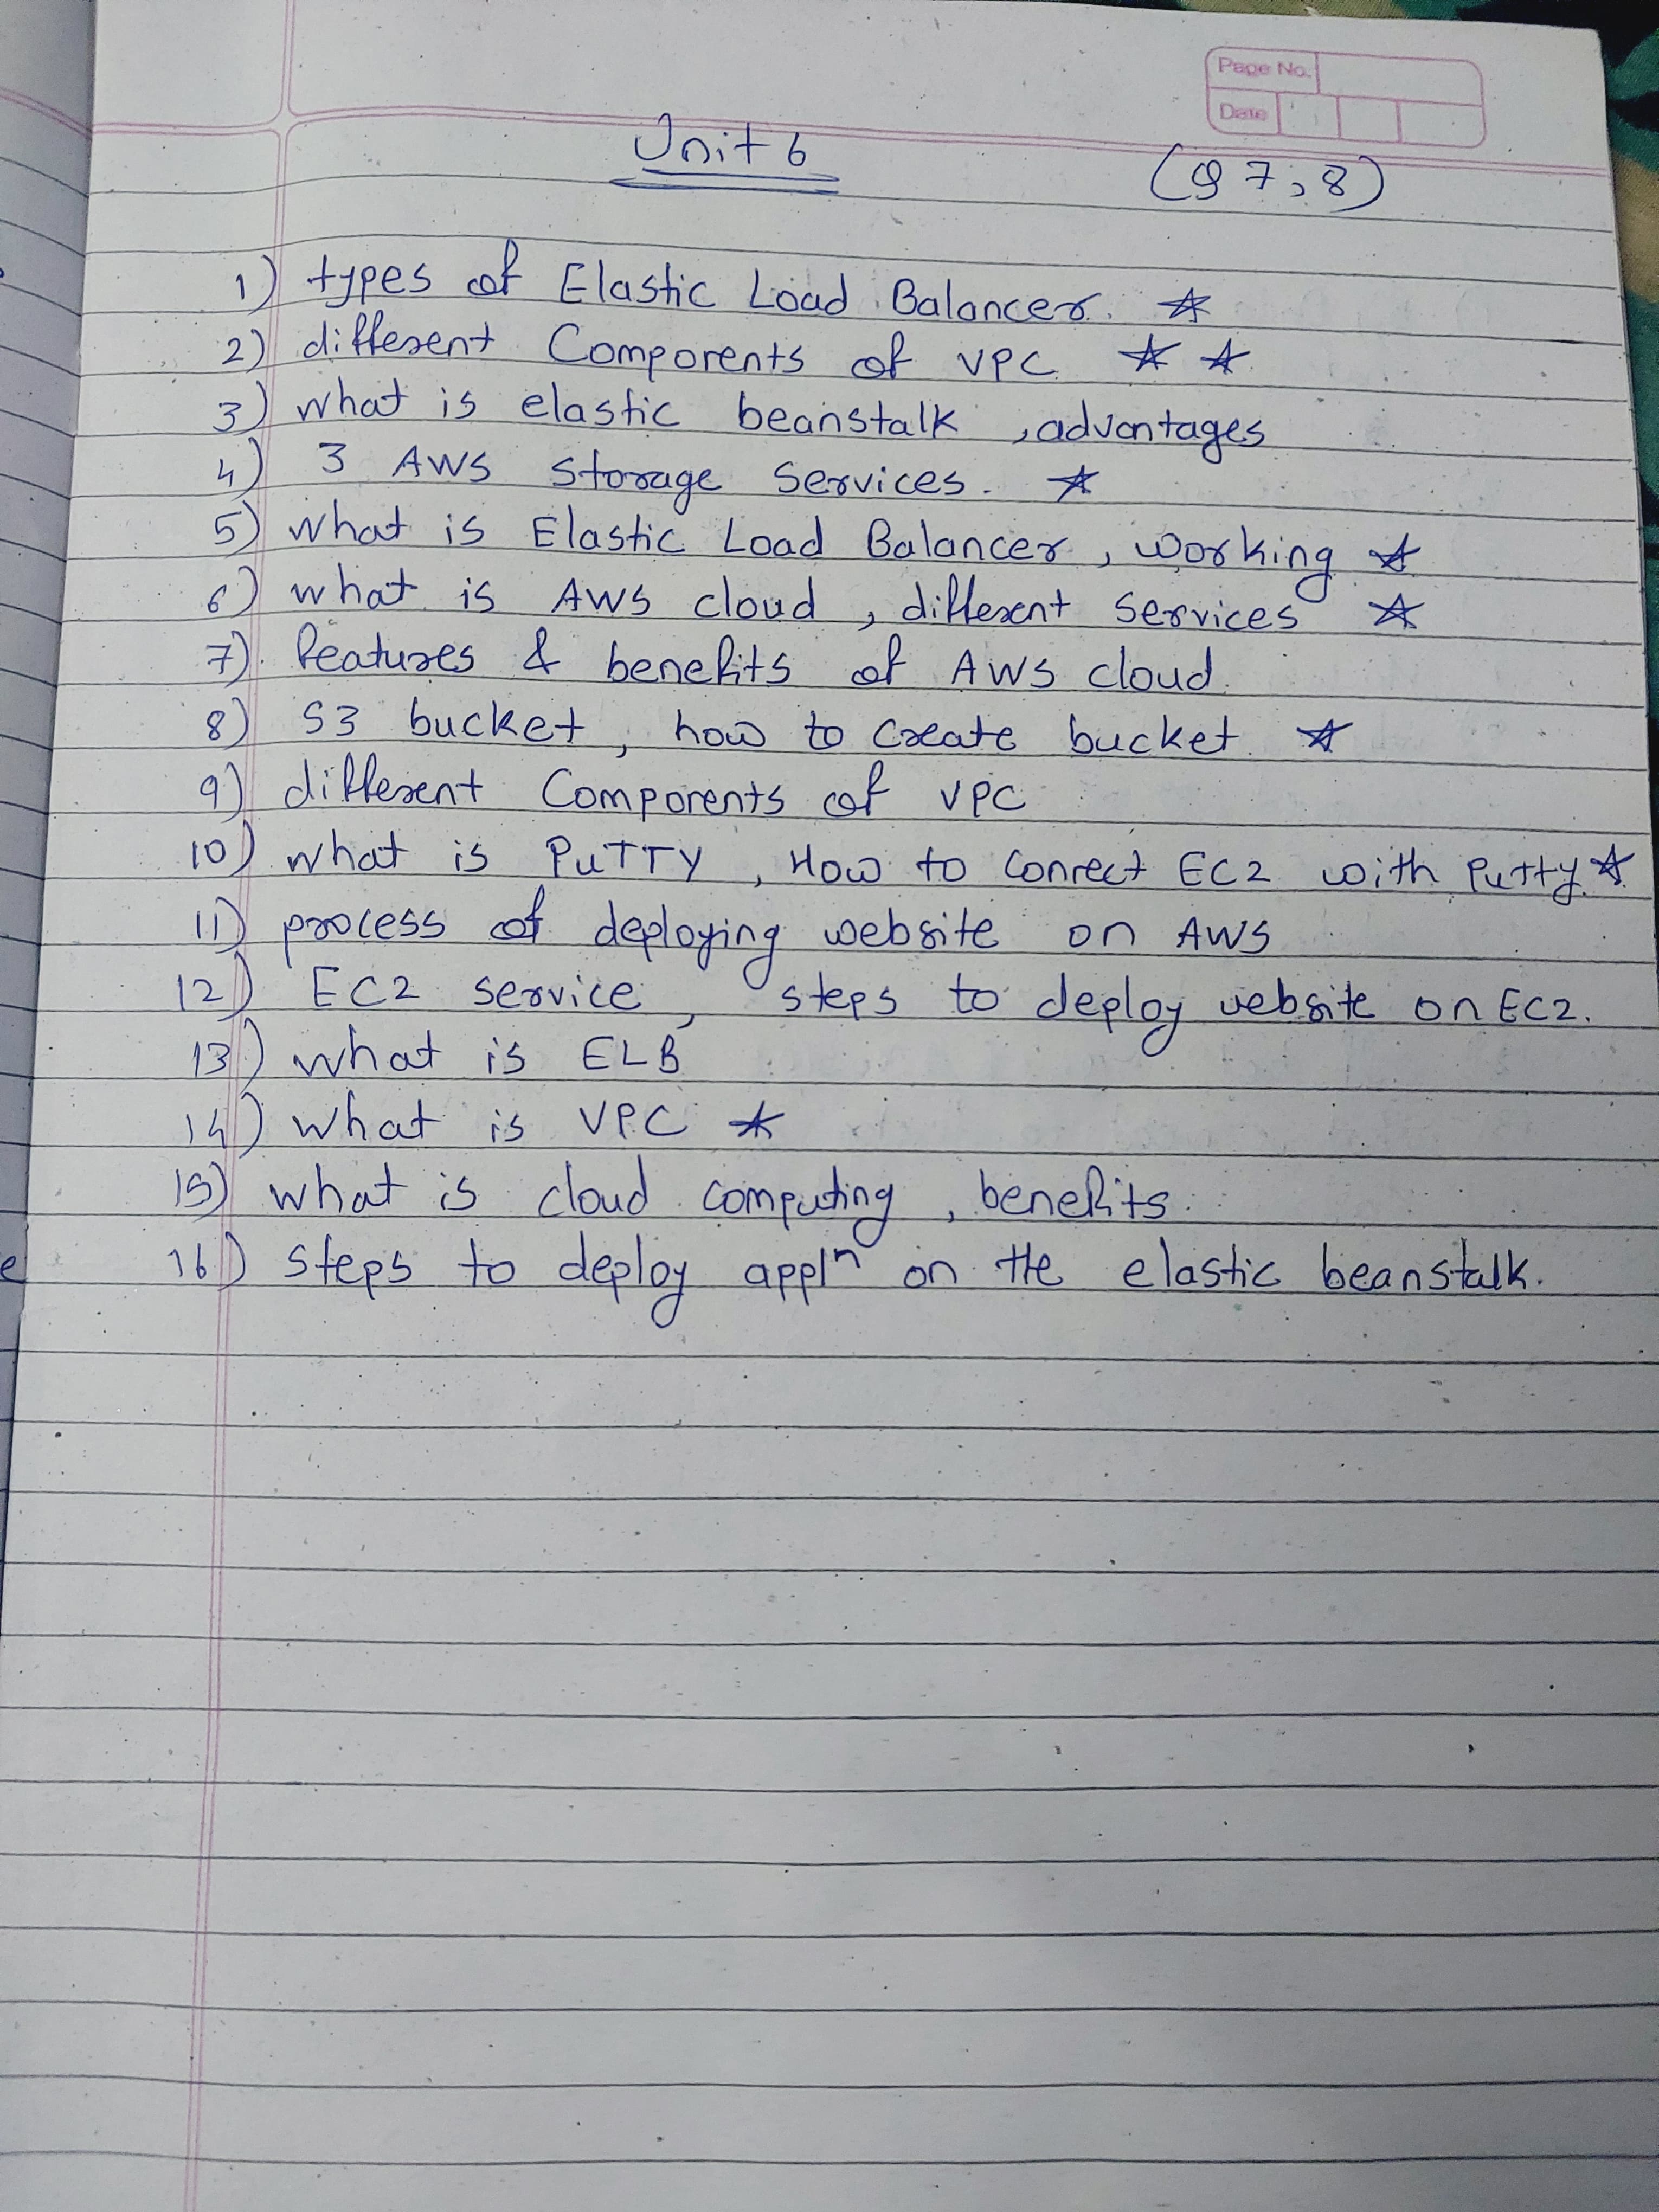 Page No.
Date
Unit 6
(Q 7, 8)
1) types of Elastic Load Balancer. ☆
2) different Components of VPC ☆ ☆
3) what is elastic beanstalk, advantages
4) 3 AWS Storage Services. ☆
5) what is Elastic Load Balancer, working ☆
6) what is AWS cloud, different Services ☆
7) features & benefits of AWS cloud.
8) S3 bucket, how to create bucket. ☆
9) different Components of VPC
10) what is PuTTY, How to connect EC2 with Putty. ☆
11) process of deploying website on AWS
12) EC2 service, steps to deploy website on EC2.
13) what is ELB
14) what is VPC ☆
15) what is cloud computing, benefits.
16) steps to deploy applⁿ on the elastic beanstalk.
e